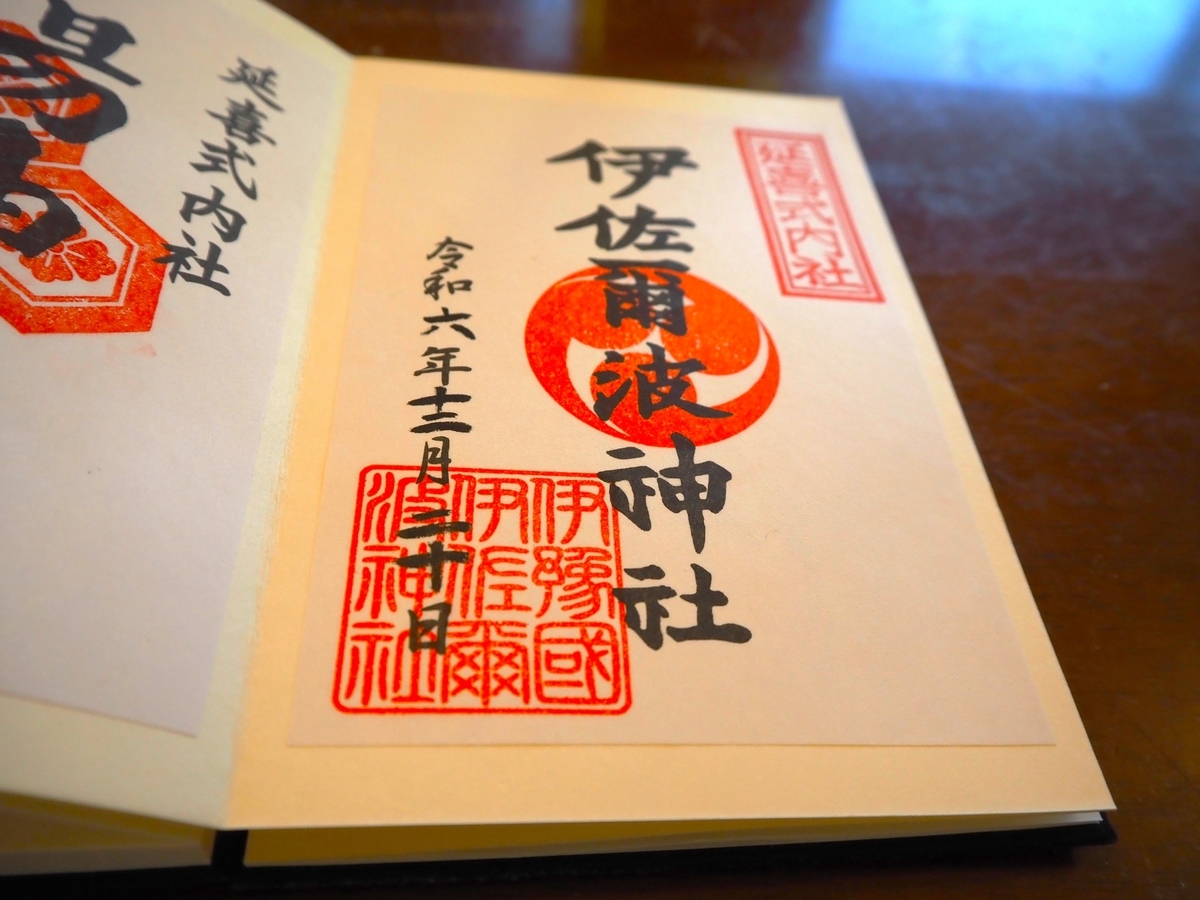 延喜式内社
伊佐爾波神社
令和六年十二月二十日
伊豫國
伊佐爾
波神社
延喜式内社